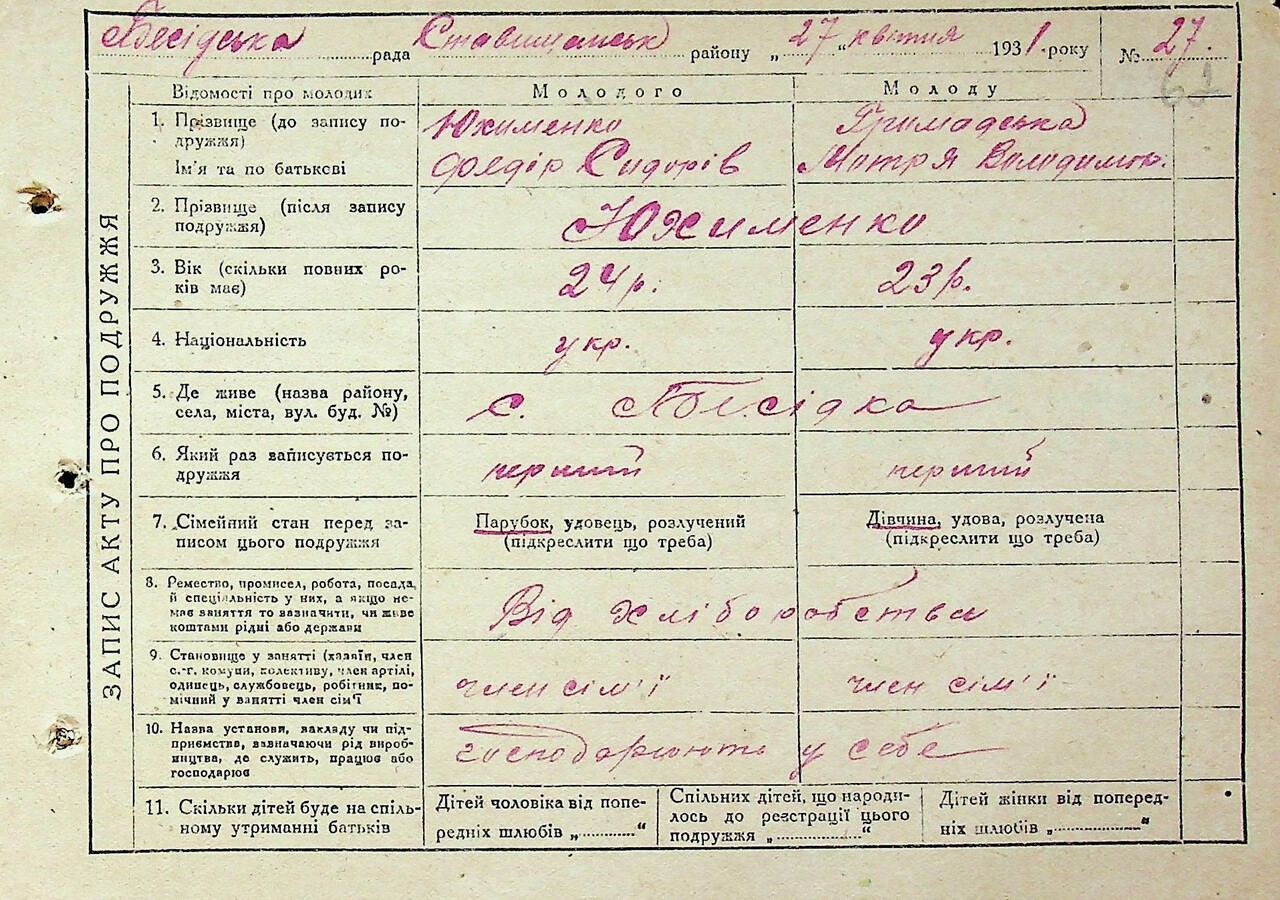 Бесідська рада Ставищанськ району „27“ квітня 1931 року № 27.
62
ЗАПИС АКТУ ПРО ПОДРУЖЖЯ
Відомості про молодих Молодого Молоду
1. Прізвище (до запису по- Юхименко Громадська
дружжя)
Ім'я та по батькові Федір Сидорів Мотря Володимов.
2. Прізвище (після запису Юхименко
подружжя)
3. Вік (скільки повних ро- 24 р. 23 р.
ків має)
4. Національність укр. укр.
5. Де живе (назва району, с. Бесідка
села, міста, вул. буд. №)
6. Який раз записується по- перший перший
дружжя
7. Сімейний стан перед за- Парубок, удовець, розлучений Дівчина, удова, розлучена
писом цього подружжя (підкреслити що треба) (підкреслити що треба)
8. Ремество, промисел, робота, посада,
й спеціяльність у них, а якщо не-
має заняття то зазначити, чи живе Від хліборобства
коштами рідні або держави
9. Становище у занятті (хазяїн, член
с.-г. комуни, колективу, член артілі,
одинець, службовець, робітник, по- член сім'ї член сім'ї
мічний у занятті член сім'ї
10. Назва установи, закладу чи під-
приємства, зазначаючи рід вироб- господарюють у себе
ництва, де служить, працює або
господарює
11. Скільки дітей буде на спіль- Дітей чоловіка від попе- Спільних дітей, що народи- Дітей жінки від поперед-
ному утриманні батьків редніх шлюбів „..........“ лось до реєстрації цього ніх шлюбів „..........“
подружжя „..........“